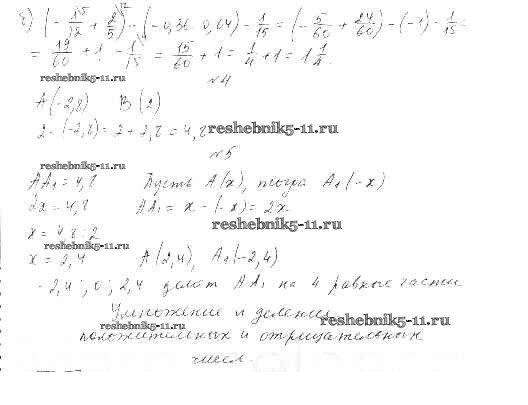 б) (-1/12 + 2/5) - (-0,36 - 0,64) - 1/15 = (-5/60 + 24/60) - (-1) - 1/15 =
= 19/60 + 1 - 1/15 = 15/60 + 1 = 1/4 + 1 = 1 1/4.
reshebnik5-11.ru
№4
A(-2,8) B(2)
2 - (-2,8) = 2 + 2,8 = 4,8
reshebnik5-11.ru
№5
reshebnik5-11.ru
AA₁ = 4,8 Пусть A(x), тогда A₁(-x)
2x = 4,8 AA₁ = x - (-x) = 2x
x = 4,8 : 2
reshebnik5-11.ru
x = 2,4 A(2,4), A₁(-2,4)
-2,4; 0; 2,4 делят AA₁ на 4 равные части
Умножение и деление
reshebnik5-11.ru reshebnik5-11.ru
положительных и отрицательных
чисел.